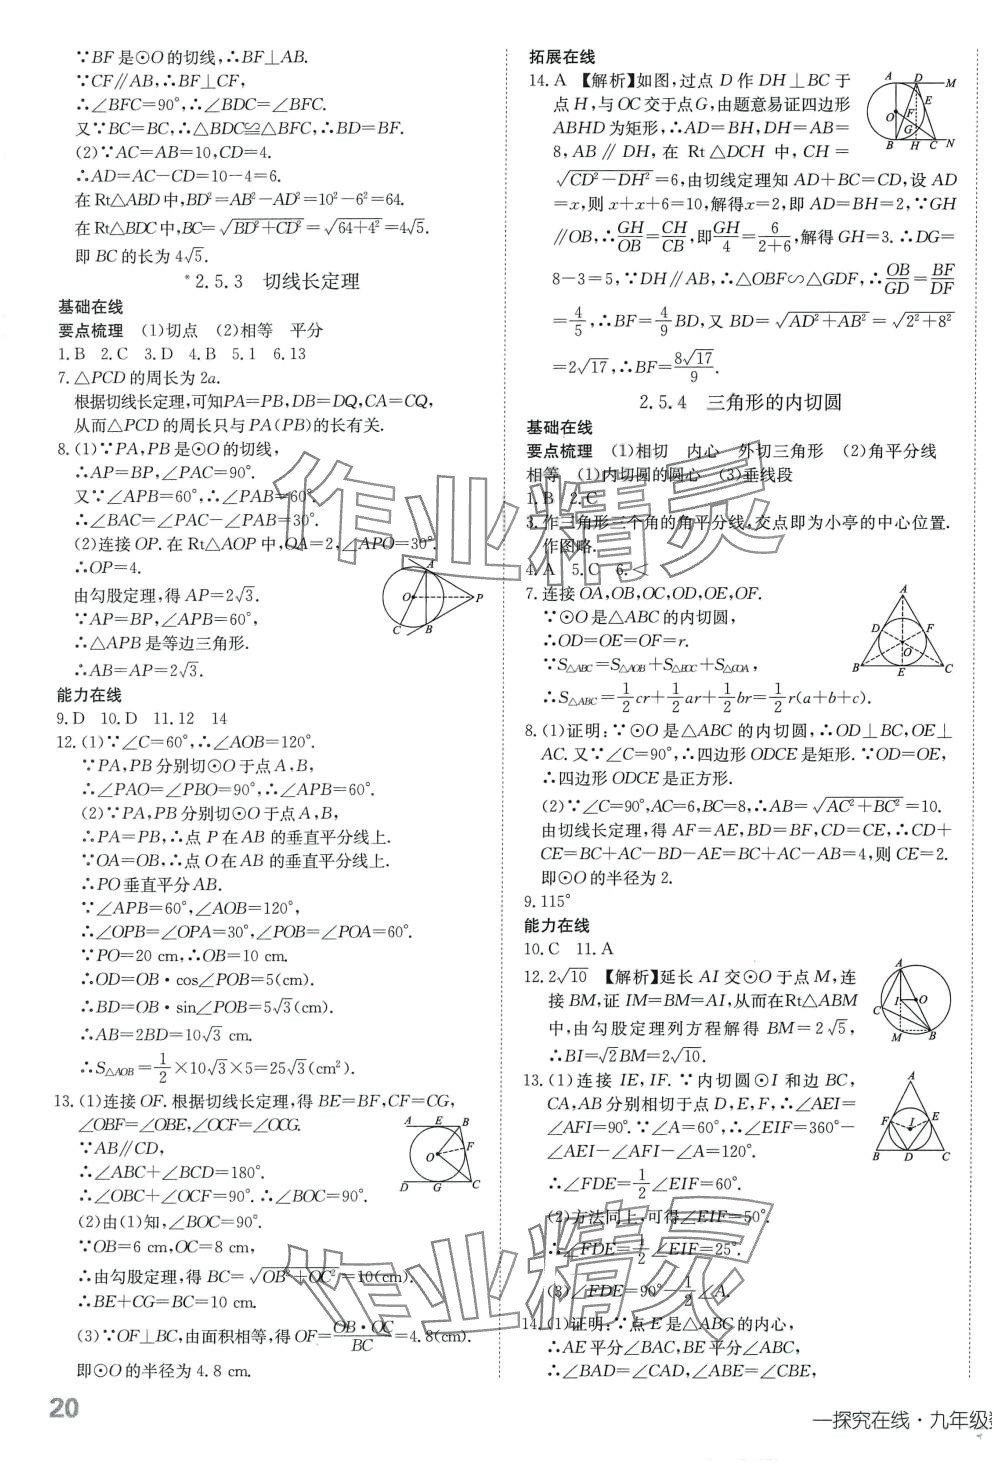 ∵BF是⊙O的切线,∴BF⊥AB.
∵CF∥AB,∴BF⊥CF,
∴∠BFC=90°,∴∠BDC=∠BFC.
又∵BC=BC,∴△BDC≌△BFC,∴BD=BF.
(2)∵AC=AB=10,CD=4.
∴AD=AC-CD=10-4=6.
在Rt△ABD中,BD²=AB²-AD²=10²-6²=64.
在Rt△BDC中,BC=√(BD²+CD²)=√(64+4²)=4√5.
即BC的长为4√5.
*2.5.3 切线长定理
基础在线
要点梳理 (1)切点 (2)相等 平分
1.B 2.C 3.D 4.B 5.1 6.13
7.△PCD的周长为2a.
根据切线长定理,可知PA=PB,DB=DQ,CA=CQ,
从而△PCD的周长只与PA(PB)的长有关.
8.(1)∵PA,PB是⊙O的切线,
∴AP=BP,∠PAC=90°.
又∵∠APB=60°,∴∠PAB=60°.
∴∠BAC=∠PAC-∠PAB=30°.
(2)连接OP.在Rt△AOP中,OA=2,∠APO=30°.
∴OP=4.
由勾股定理,得AP=2√3.
∵AP=BP,∠APB=60°,
∴△APB是等边三角形.
∴AB=AP=2√3.
A
O
P
C
B
能力在线
9.D 10.D 11.12 14
12.(1)∵∠C=60°,∴∠AOB=120°.
∵PA,PB分别切⊙O于点A,B,
∴∠PAO=∠PBO=90°,∴∠APB=60°.
(2)∵PA,PB分别切⊙O于点A,B,
∴PA=PB,∴点P在AB的垂直平分线上.
∵OA=OB,∴点O在AB的垂直平分线上.
∴PO垂直平分AB.
∵∠APB=60°,∠AOB=120°,
∴∠OPB=∠OPA=30°,∠POB=∠POA=60°.
∵PO=20 cm,∴OB=10 cm.
∴OD=OB·cos∠POB=5(cm).
∴BD=OB·sin∠POB=5√3(cm).
∴AB=2BD=10√3 cm.
∴S△AOB=1/2×10√3×5=25√3(cm²).
13.(1)连接OF.根据切线长定理,得BE=BF,CF=CG,
∠OBF=∠OBE,∠OCF=∠OCG.
∵AB∥CD,
∴∠ABC+∠BCD=180°.
∴∠OBC+∠OCF=90°.∴∠BOC=90°.
(2)由(1)知,∠BOC=90°.
∵OB=6 cm,OC=8 cm,
∴由勾股定理,得BC=√(OB²+OC²)=10(cm).
∴BE+CG=BC=10 cm.
(3)∵OF⊥BC,由面积相等,得OF=OB·OC/BC=4.8(cm).
即⊙O的半径为4.8 cm.
A E B
F
O
D G C
20
拓展在线
14.A 【解析】如图,过点D作DH⊥BC于
点H,与OC交于点G,由题意易证四边形
ABHD为矩形,∴AD=BH,DH=AB=
8,AB∥DH,在Rt△DCH中,CH=
√(CD²-DH²)=6,由切线定理知AD+BC=CD,设AD
=x,则x+x+6=10,解得x=2,即AD=BH=2,∵GH
∥OB,∴GH/OB=CH/CB,即GH/4=6/(2+6),解得GH=3.∴DG=
8-3=5,∵DH∥AB,∴△OBF∽△GDF,∴OB/GD=BF/DF
=4/5,∴BF=4/9BD,又BD=√(AD²+AB²)=√(2²+8²)
=2√17,∴BF=8√17/9.
A D M
E
O F
G
B H C N
2.5.4 三角形的内切圆
基础在线
要点梳理 (1)相切 内心 外切三角形 (2)角平分线
相等 (1)内切圆的圆心 (3)垂线段
1.B 2.C
3.作三角形三个角的角平分线,交点即为小亭的中心位置.
作图略.
4.A 5.C 6.<
7.连接OA,OB,OC,OD,OE,OF.
∵⊙O是△ABC的内切圆,
∴OD=OE=OF=r.
∵S△ABC=S△AOB+S△BOC+S△COA,
∴S△ABC=1/2cr+1/2ar+1/2br=1/2r(a+b+c).
A
D F
O
B E C
8.(1)证明:∵⊙O是△ABC的内切圆,∴OD⊥BC,OE⊥
AC.又∵∠C=90°,∴四边形ODCE是矩形.∵OD=OE,
∴四边形ODCE是正方形.
(2)∵∠C=90°,AC=6,BC=8,∴AB=√(AC²+BC²)=10.
由切线长定理,得AF=AE,BD=BF,CD=CE,∴CD+
CE=BC+AC-BD-AE=BC+AC-AB=4,则CE=2.
即⊙O的半径为2.
9.115°
能力在线
10.C 11.A
12.2√10 【解析】延长AI交⊙O于点M,连
接BM,证IM=BM=AI,从而在Rt△ABM
中,由勾股定理列方程解得BM=2√5,
∴BI=√2BM=2√10.
A
I O
C
M B
13.(1)连接IE,IF.∵内切圆⊙I和边BC,
CA,AB分别相切于点D,E,F,∴∠AEI=
∠AFI=90°.∵∠A=60°,∴∠EIF=360°-
∠AEI-∠AFI-∠A=120°.
∴∠FDE=1/2∠EIF=60°.
(2)方法同上,可得∠EIF=50°.
∴∠FDE=1/2∠EIF=25°.
(3)∠FDE=90°-1/2∠A.
A
F E
I
B D C
14.(1)证明:∵点E是△ABC的内心,
∴AE平分∠BAC,BE平分∠ABC,
∴∠BAD=∠CAD,∠ABE=∠CBE,
一探究在线·九年级数
作业精灵
作业精灵